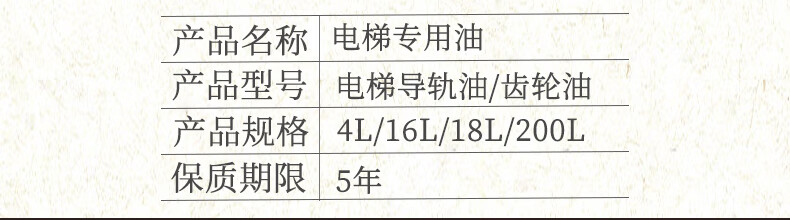 产品名称 电梯专用油
产品型号 电梯导轨油/齿轮油
产品规格 4L/16L/18L/200L
保质期限 5年